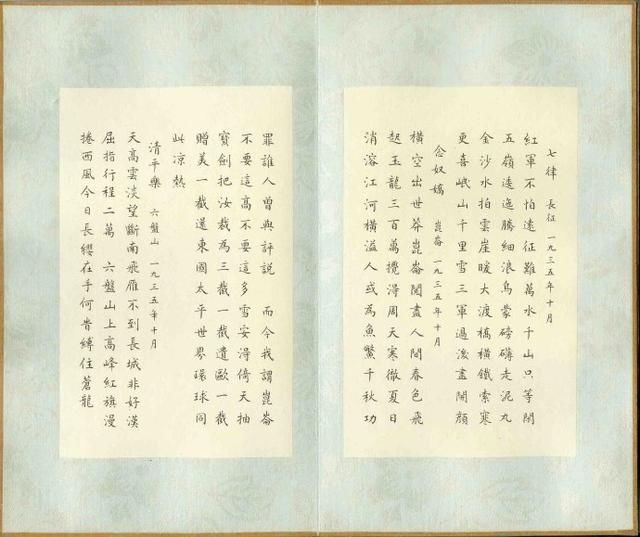 七律　長征　一九三五年十月
紅軍不怕遠征難萬水千山只等閒
五嶺逶迤騰細浪烏蒙磅礴走泥丸
金沙水拍雲崖暖大渡橋橫鐵索寒
更喜岷山千里雪三軍過後盡開顏
念奴嬌　崑崙　一九三五年十月
橫空出世莽崑崙閱盡人間春色飛
起玉龍三百萬攪得周天寒徹夏日
消溶江河橫溢人或為魚鱉千秋功
罪誰人曾與評說　而今我謂崑崙
不要這高不要這多雪安得倚天抽
寶劍把汝裁為三截一截遺歐一截
贈美一截還東國太平世界環球同
此凉熱
清平樂　六盤山　一九三五年十月
天高雲淡望斷南飛雁不到長城非好漢
屈指行程二萬　六盤山上高峰紅旗漫
捲西風今日長纓在手何時縛住蒼龍